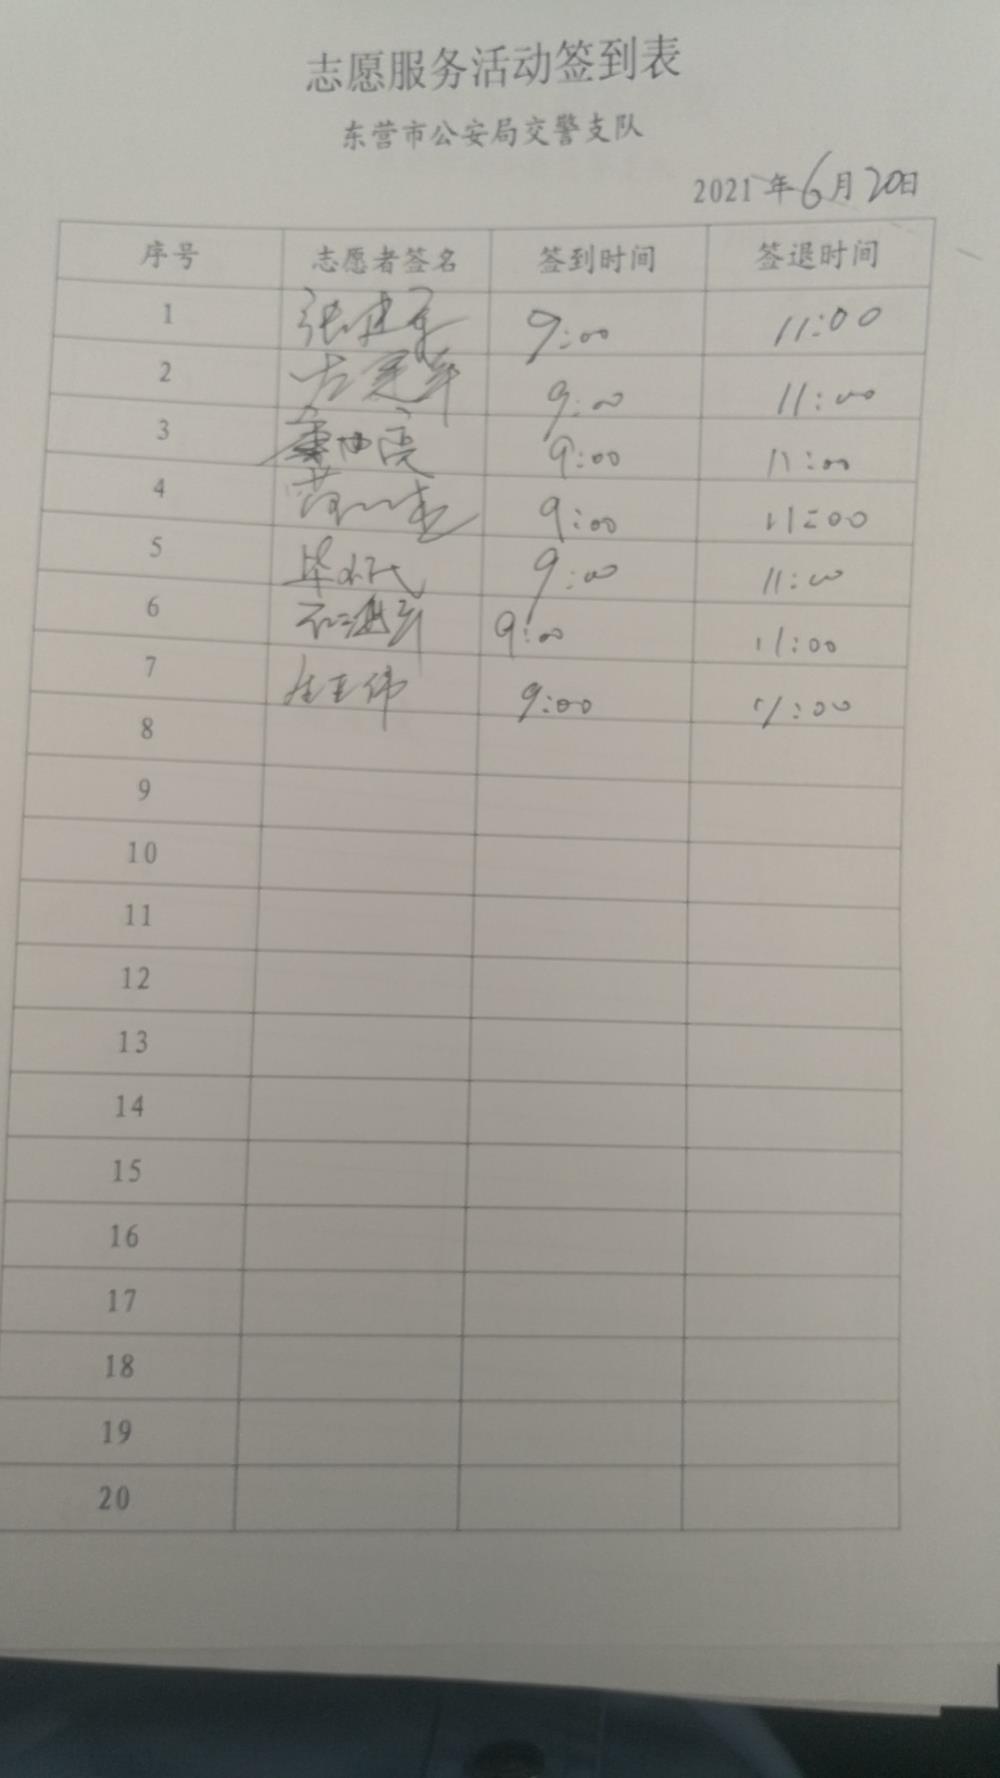 志愿服务活动签到表
东营市公安局交警支队
2021年6月20日
序号 志愿者签名 签到时间 签退时间
1 张建军 9:00 11:00
2 9:00 11:00
3 9:00 11:00
4 9:00 11:00
5 9:00 11:00
6 9:00 11:00
7 9:00 11:00
8
9
10
11
12
13
14
15
16
17
18
19
20